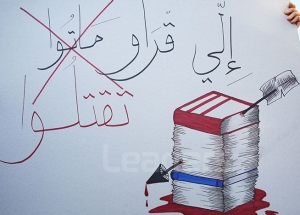 إِلّي قْرَاو مَاتُوا
تقتلُوا
Leaders